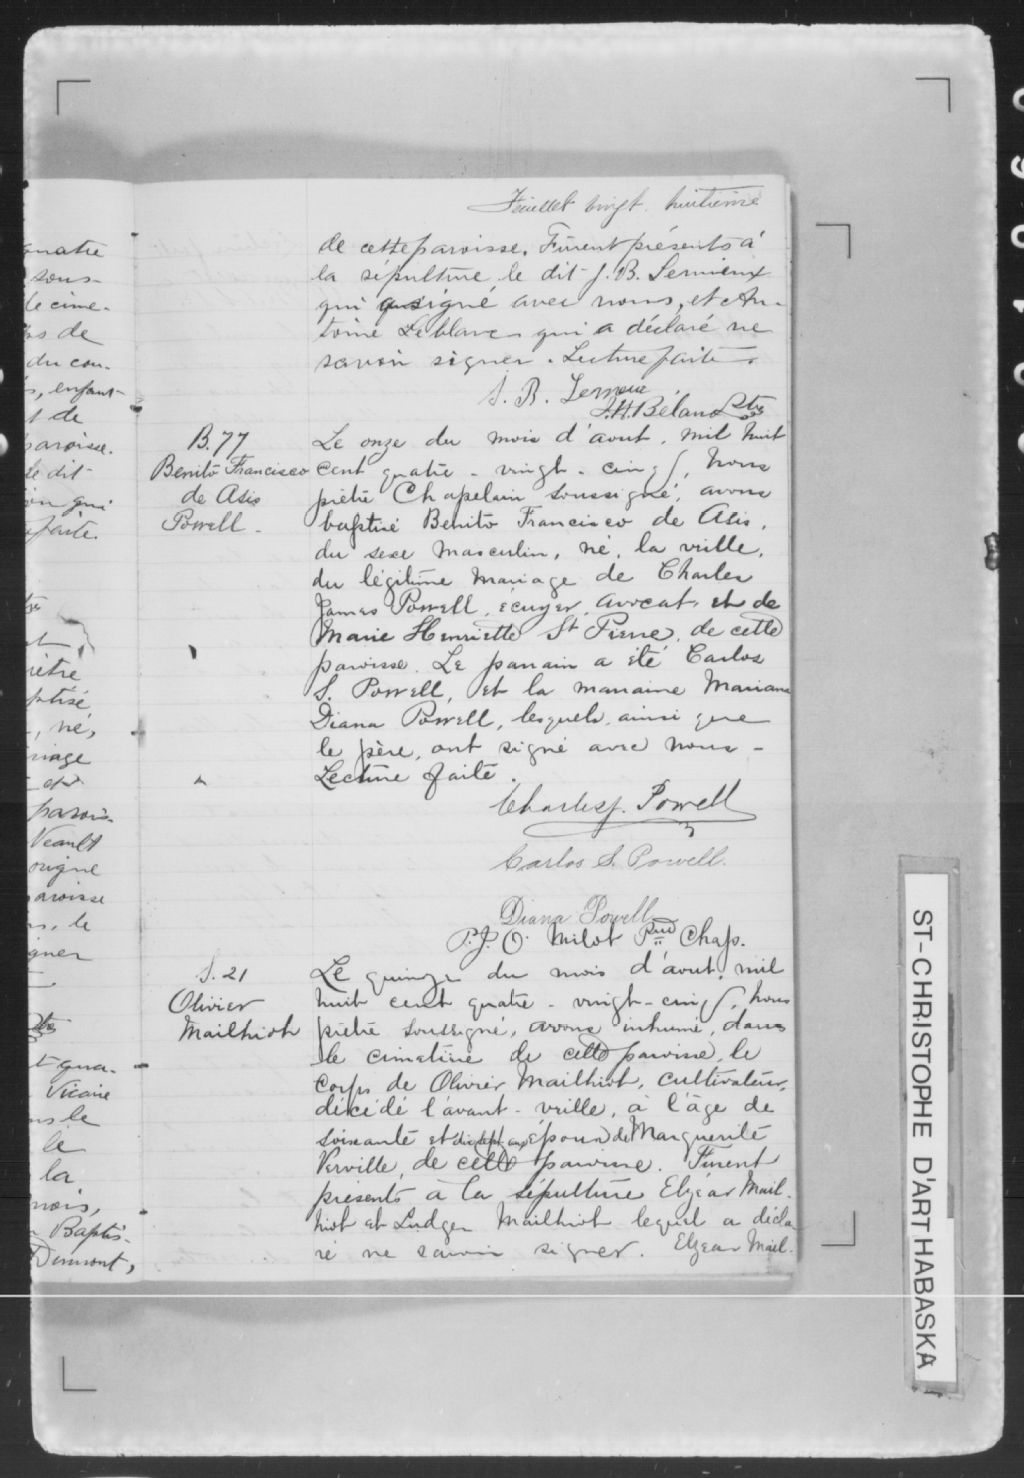 Feuillet vingt huitième
de cette paroisse. Furent présents à
la sépulture, le dit J. B. Lemieux
qui a signé avec nous, et An-
toine Leblanc qui a déclaré ne
savoir signer. Lecture faite.
J. B. Lemieux
J. H. Béland Ptre
B. 77
Benito Francisco
de Asis
Powell
Le onze du mois d'aout, mil huit
cent quatre-vingt-cinq, nous
prêtre Chapelain soussigné, avons
baptisé Benito Francisco de Asis,
du sexe masculin, né, la veille,
du légitime mariage de Charles
James Powell, écuyer, avocat, et de
Marie Henriette St Pierre, de cette
paroisse. Le parrain a été Carlos
S. Powell, et la marraine Mariana
Diana Powell, lesquels, ainsi que
le père, ont signé avec nous -
Lecture faite.
Charles J. Powell
Carlos S. Powell.
Diana Powell
P. J. O. Milot Chap.
S. 21
Olivier
Mailhiot
Le quinze du mois d'aout, mil
huit cent quatre-vingt-cinq, nous
prêtre soussigné, avons inhumé, dans
le cimetière de cette paroisse, le
corps de Olivier Mailhiot, cultivateur,
décédé l'avant-veille, à l'âge de
soixante et dix sept ans, époux de Marguerite
Verville, de cette paroisse. Furent
présents à la sépulture Elzéar Mail-
hiot et Ludger Mailhiot lequel a décla-
ré ne savoir signer. Elzéar Mail-
quatre
sous-
le cime-
ps de
du cou-
, enfant
t de
paroisse.
Le dit
qui
faite.
prêtre
ptisé
, né,
riage
parois-
Veault
origne
paroisse
, le
gner
qua-
Vicaire
ns le
le
la
mois,
Baptis-
Dumont,
ST-CHRISTOPHE D'ARTHABASKA